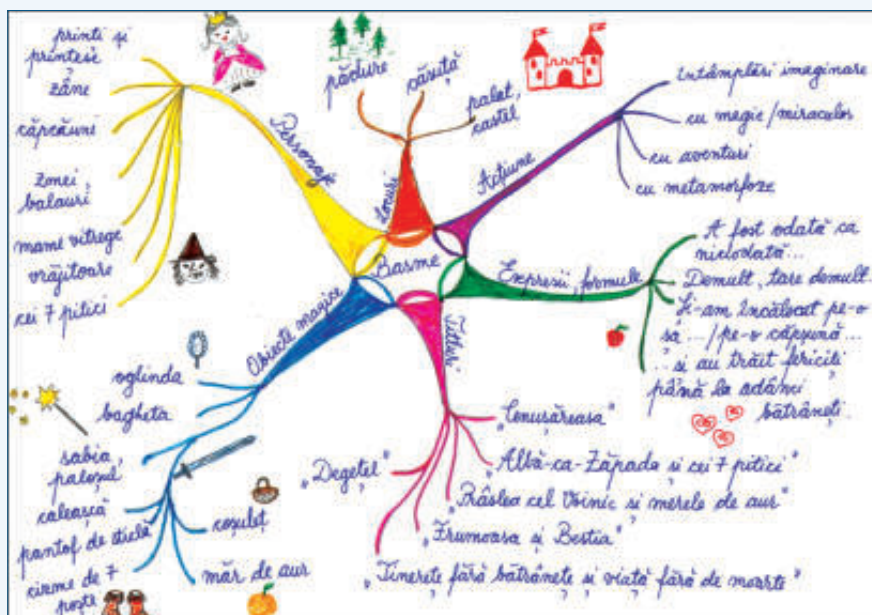 prinți și
prințese
zâne
căpcăuni
zmei,
balauri
mame vitrege
vrăjitoare
cei 7 pitici
Personaje
pădure
căsuță
palat,
castel
Locuri
Acțiune
întâmplări imaginare
cu magie/miraculos
cu aventuri
cu metamorfoze
Basme
Expresii, formule
A fost odată ca
niciodată...
Demult, tare demult...
Și-am încălecat pe-o
șa .../pe-o căpșună...
...și au trăit fericiți
până la adânci
bătrâneți.
Titluri
„Cenușăreasa"
„Albă-ca-Zăpada și cei 7 pitici"
„Prâslea cel Voinic și merele de aur"
„Degețel"
„Frumoasa și Bestia"
„Tinerețe fără bătrânețe și viață fără de moarte"
Obiecte magice
oglinda
bagheta
sabia,
paloșul
caleașcă
pantof de sticlă
cizme de 7
poște
coșuleț
măr de aur